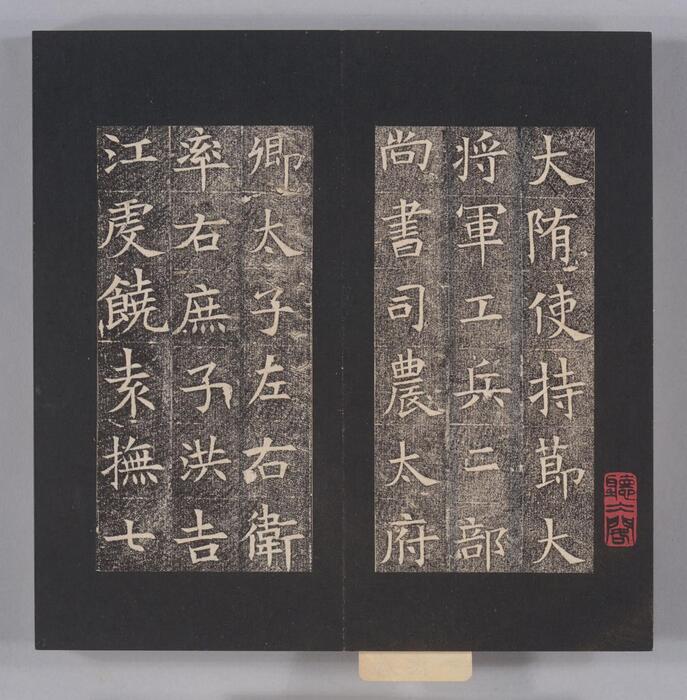 大陏使持莭大
将軍工兵二部
尚書司農太府
卿太子左右衛
率右庶子洪吉
江虔饒袁撫七
聽仌閣